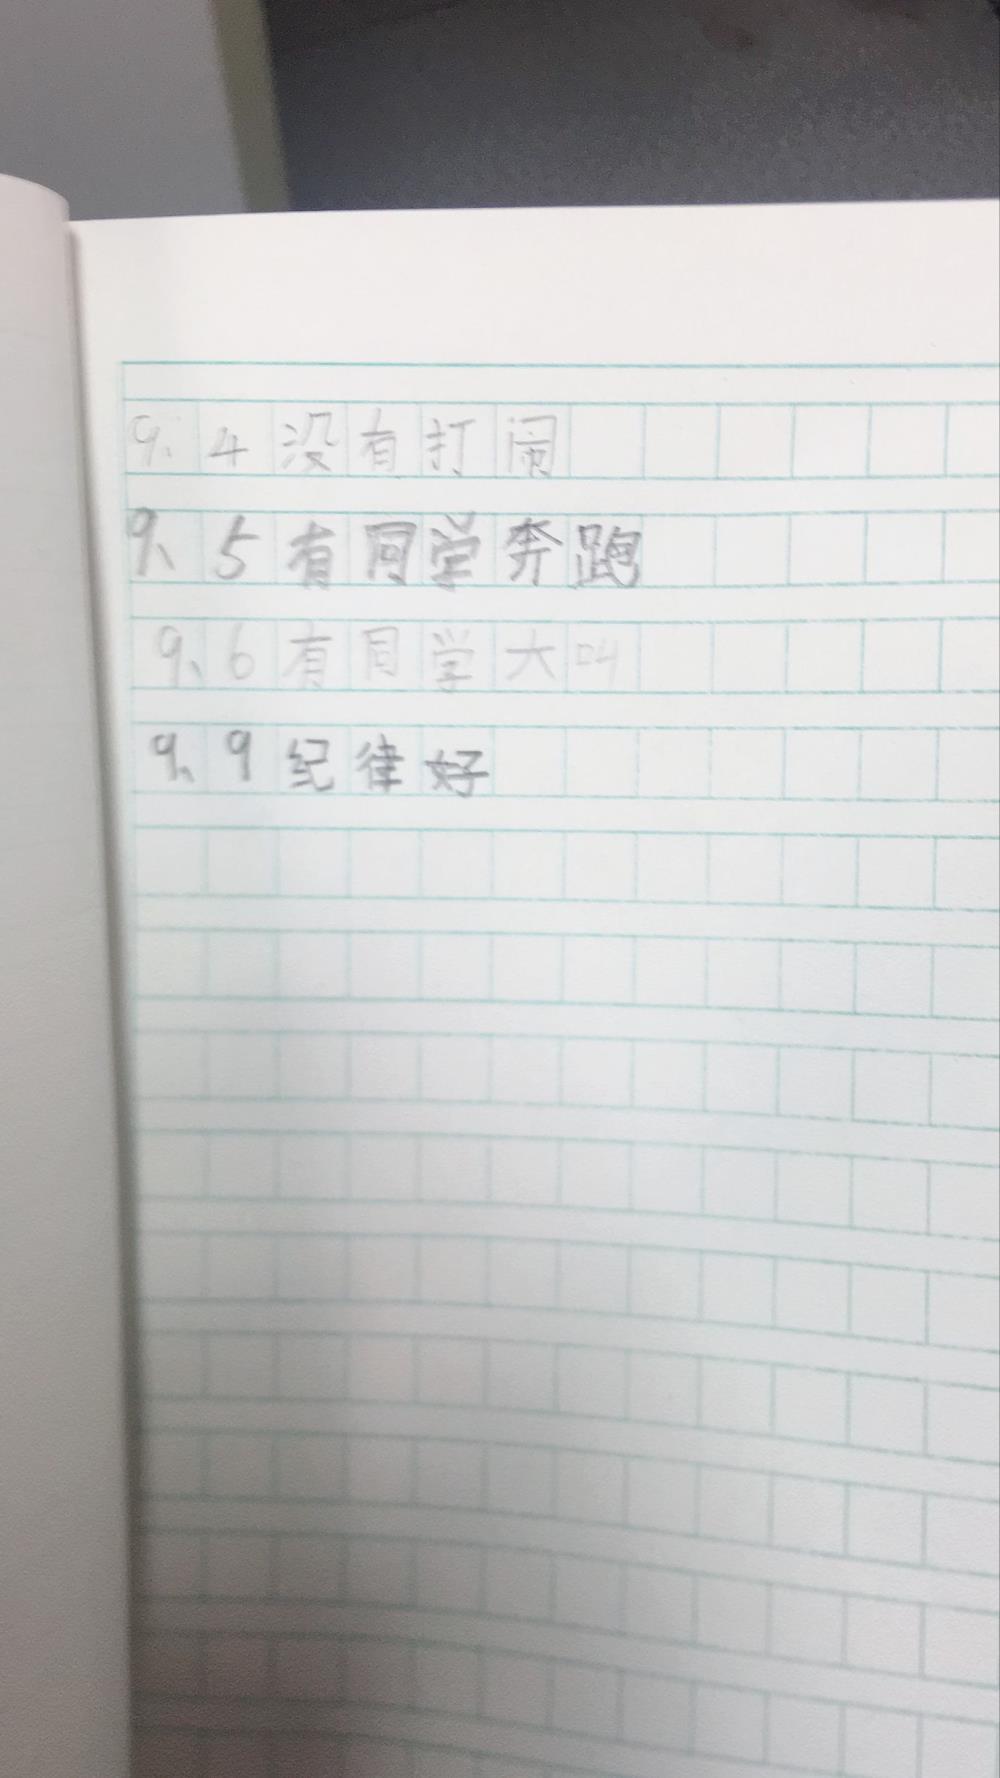 9、4没有打闹
9、5有同学奔跑
9、6有同学大叫
9、9纪律好